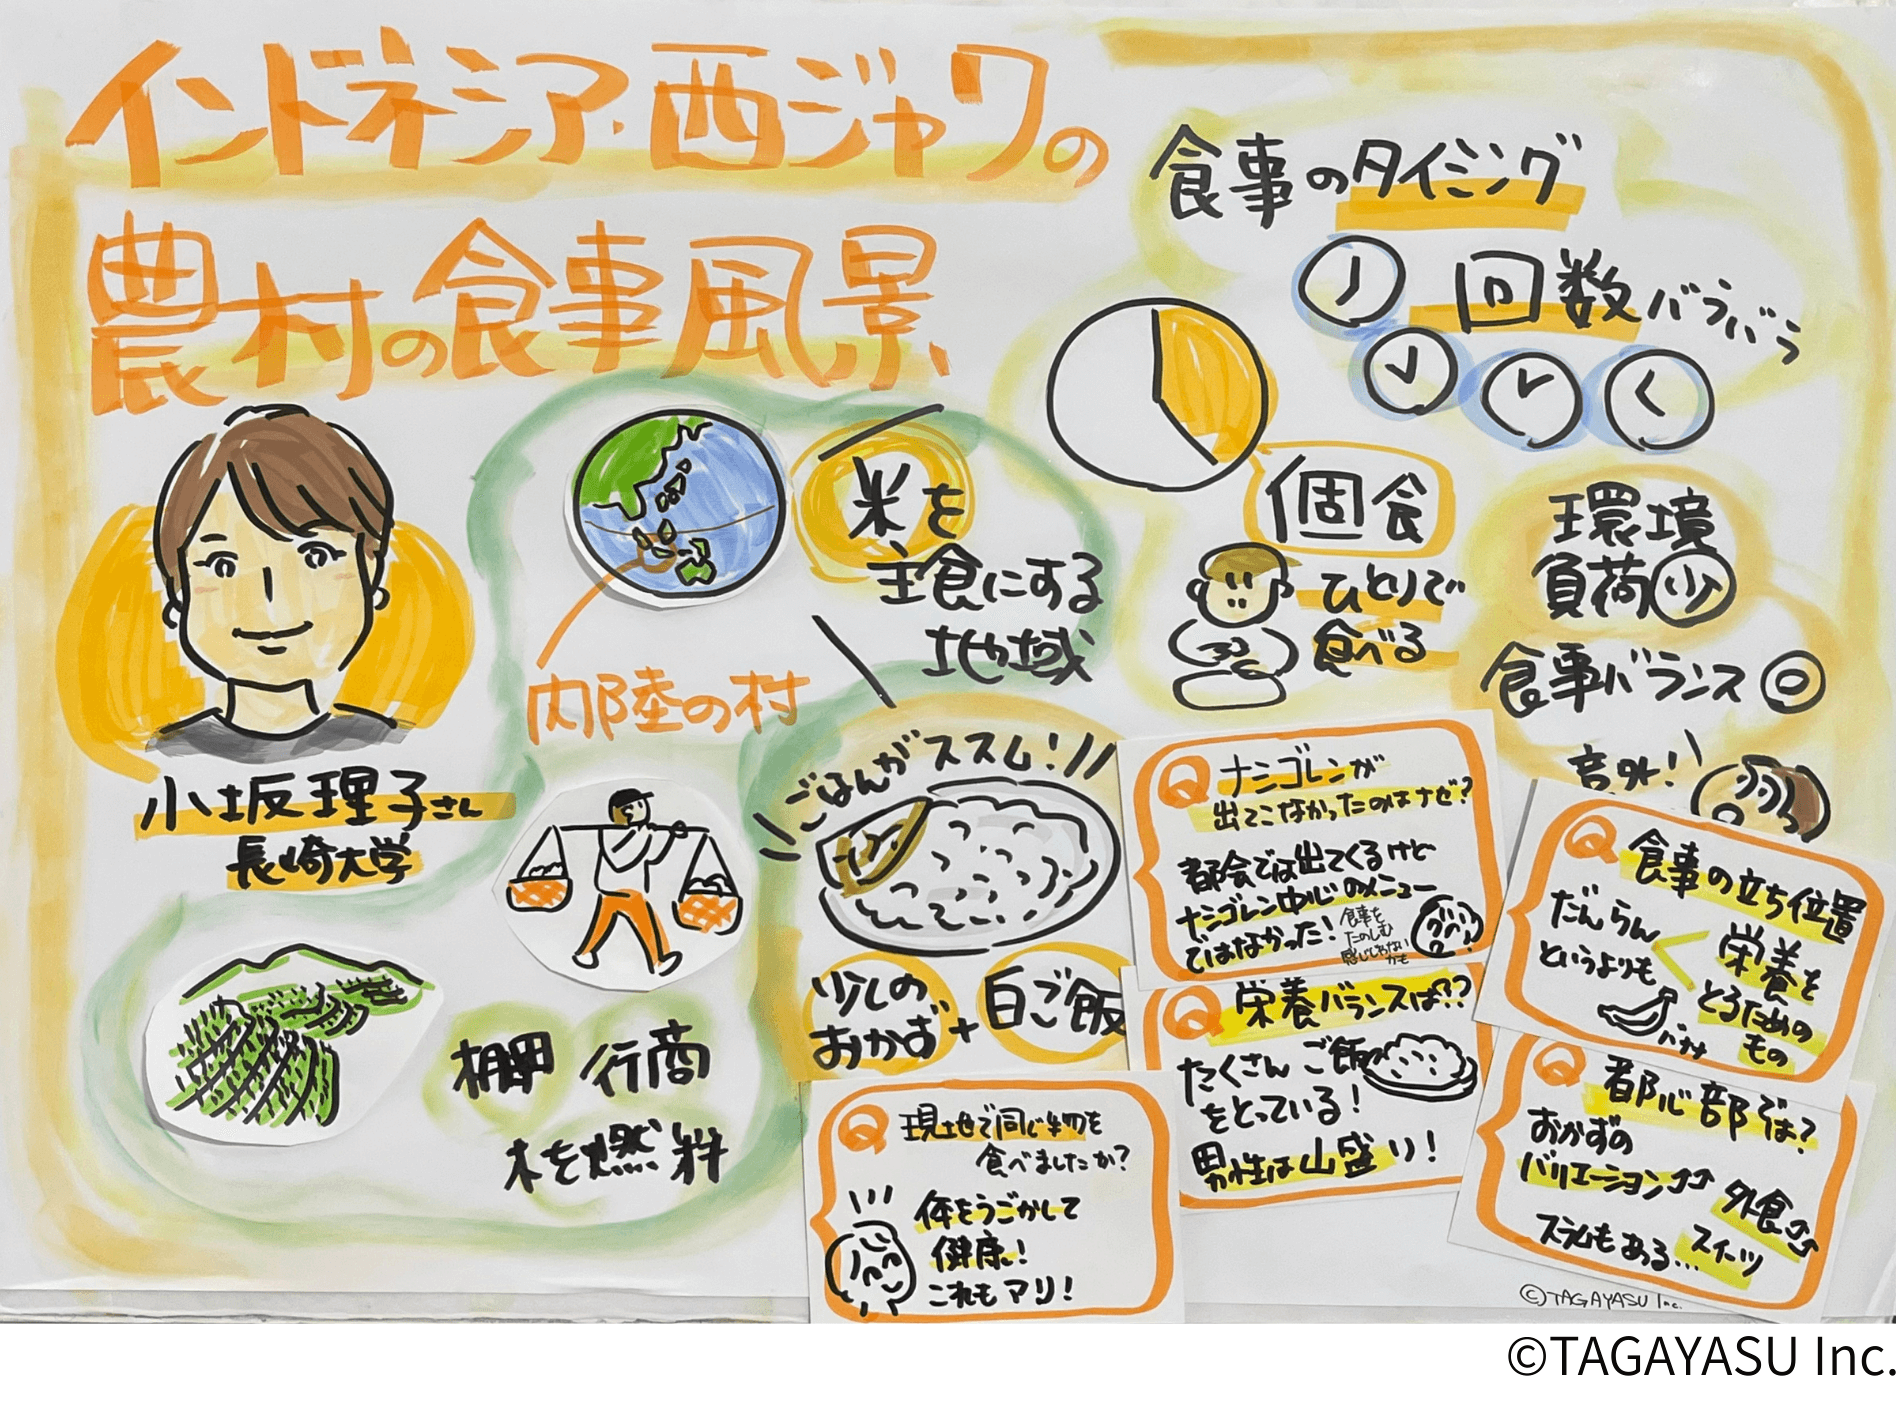 インドネシア・西ジャワの
農村の食事風景
小坂理子さん
長崎大学
米を
主食にする
地域
内陸の村
棚田 行商
木を燃料
ごはんがススム!
少しの
おかず
+
白ご飯
食事のタイミング
回数バラバラ
個食
ひとりで
食べる
環境
負荷少
食事バランス◎
意外!
Q ナシゴレンが
出てこなかったのはナゼ?
都会では出てくるけど
ナシゴレン中心のメニュー
ではなかった!
食事を
たのしむ
感じじゃない
かも
Q 食事の立ち位置
だんらん
というよりも
<
栄養を
とるための
もの
バナナ
Q 栄養バランスは??
たくさんご飯
をとっている!
男性は山盛り!
Q 都心部では?
おかずの
バリエーション↑↑
外食↑↑
スラムもある…
スイーツ
Q 現地で同じ物を
食べましたか?
体をうごかして
健康!
これもアリ!
©TAGAYASU Inc.
©TAGAYASU Inc.